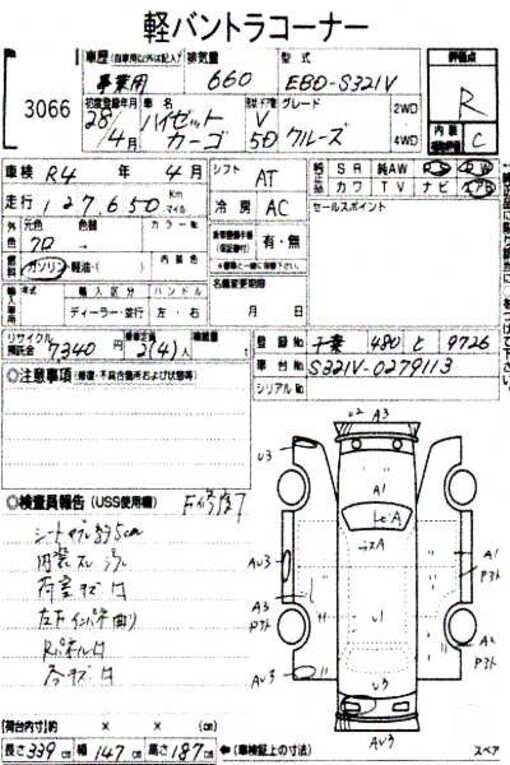 軽バントラコーナー
No 3066
車歴 (自家用以外は記入) 事業用
排気量 660
型式 EBD-S321V
評価点 R
内装 C
初度登録年月 28/4月
車名 ハイゼットカーゴ
V 5D
グレード クルーズ
2WD
4WD
車検 R4 年 4月
シフト AT
SR 純AW PS PW
カワ TV ナビ エアB
走行 127,650 Km マイル
冷房 AC
セールスポイント
外色 元色 色替 カラーNo
クロ →
有・無
燃料 ガソリン・軽油・( ) 内装色
名義変更期限
月 日
輸入車 年式 輸入区分 ハンドル
ディーラー・並行 左・右
リサイクル預託金 7340円
乗車定員 2(4)人
積載量 t
登録No 千葉 480 と 9726
車台No S321V-0279113
シリアルNo
◎注意事項 (修復・不具合箇所および状態等)
◎検査員報告 (USS使用欄)
シート
内装スレ
荷室キズ凹
左下インパネ
Rパネル凹
各キズ凹
U2 A3
U3
A1
A
スA
AU3
A1
P3ト
A3
P3ト
U1
A2
P3ト
AU3
U3
AU3
(荷台内寸) 約 × × (cm)
長さ 339 cm 幅 147 cm 高さ 187 cm ←(車検証上の寸法)
スペア